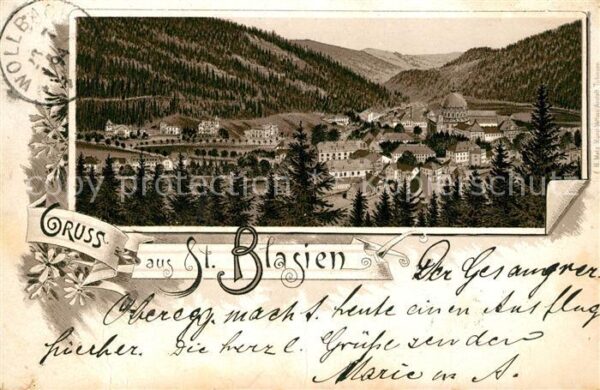 WOLLB
GRUSS
aus St. Blasien
Der Gesangver.
Oberegg. macht heute einen Ausflug
hierher. Die herzl. Grüße senden
Marie u. A.
copyright protection service